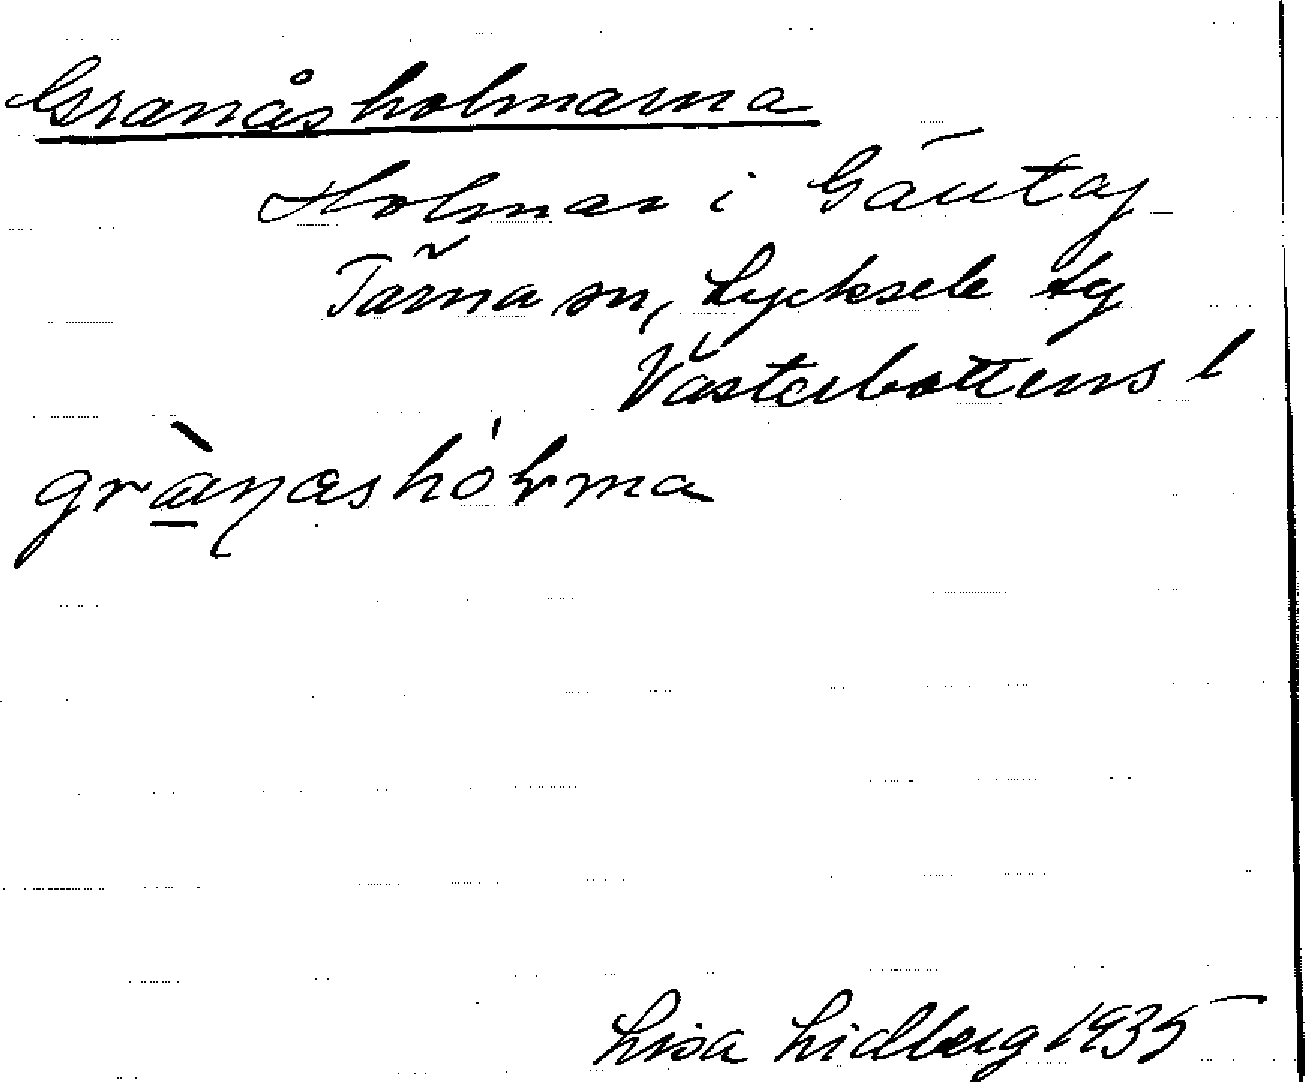 Granåsholmarna
Holmar i Gäutaj
Tärna sn, Lycksele tg
Västerbottens l
grànasholma
Lisa Lidberg 1935